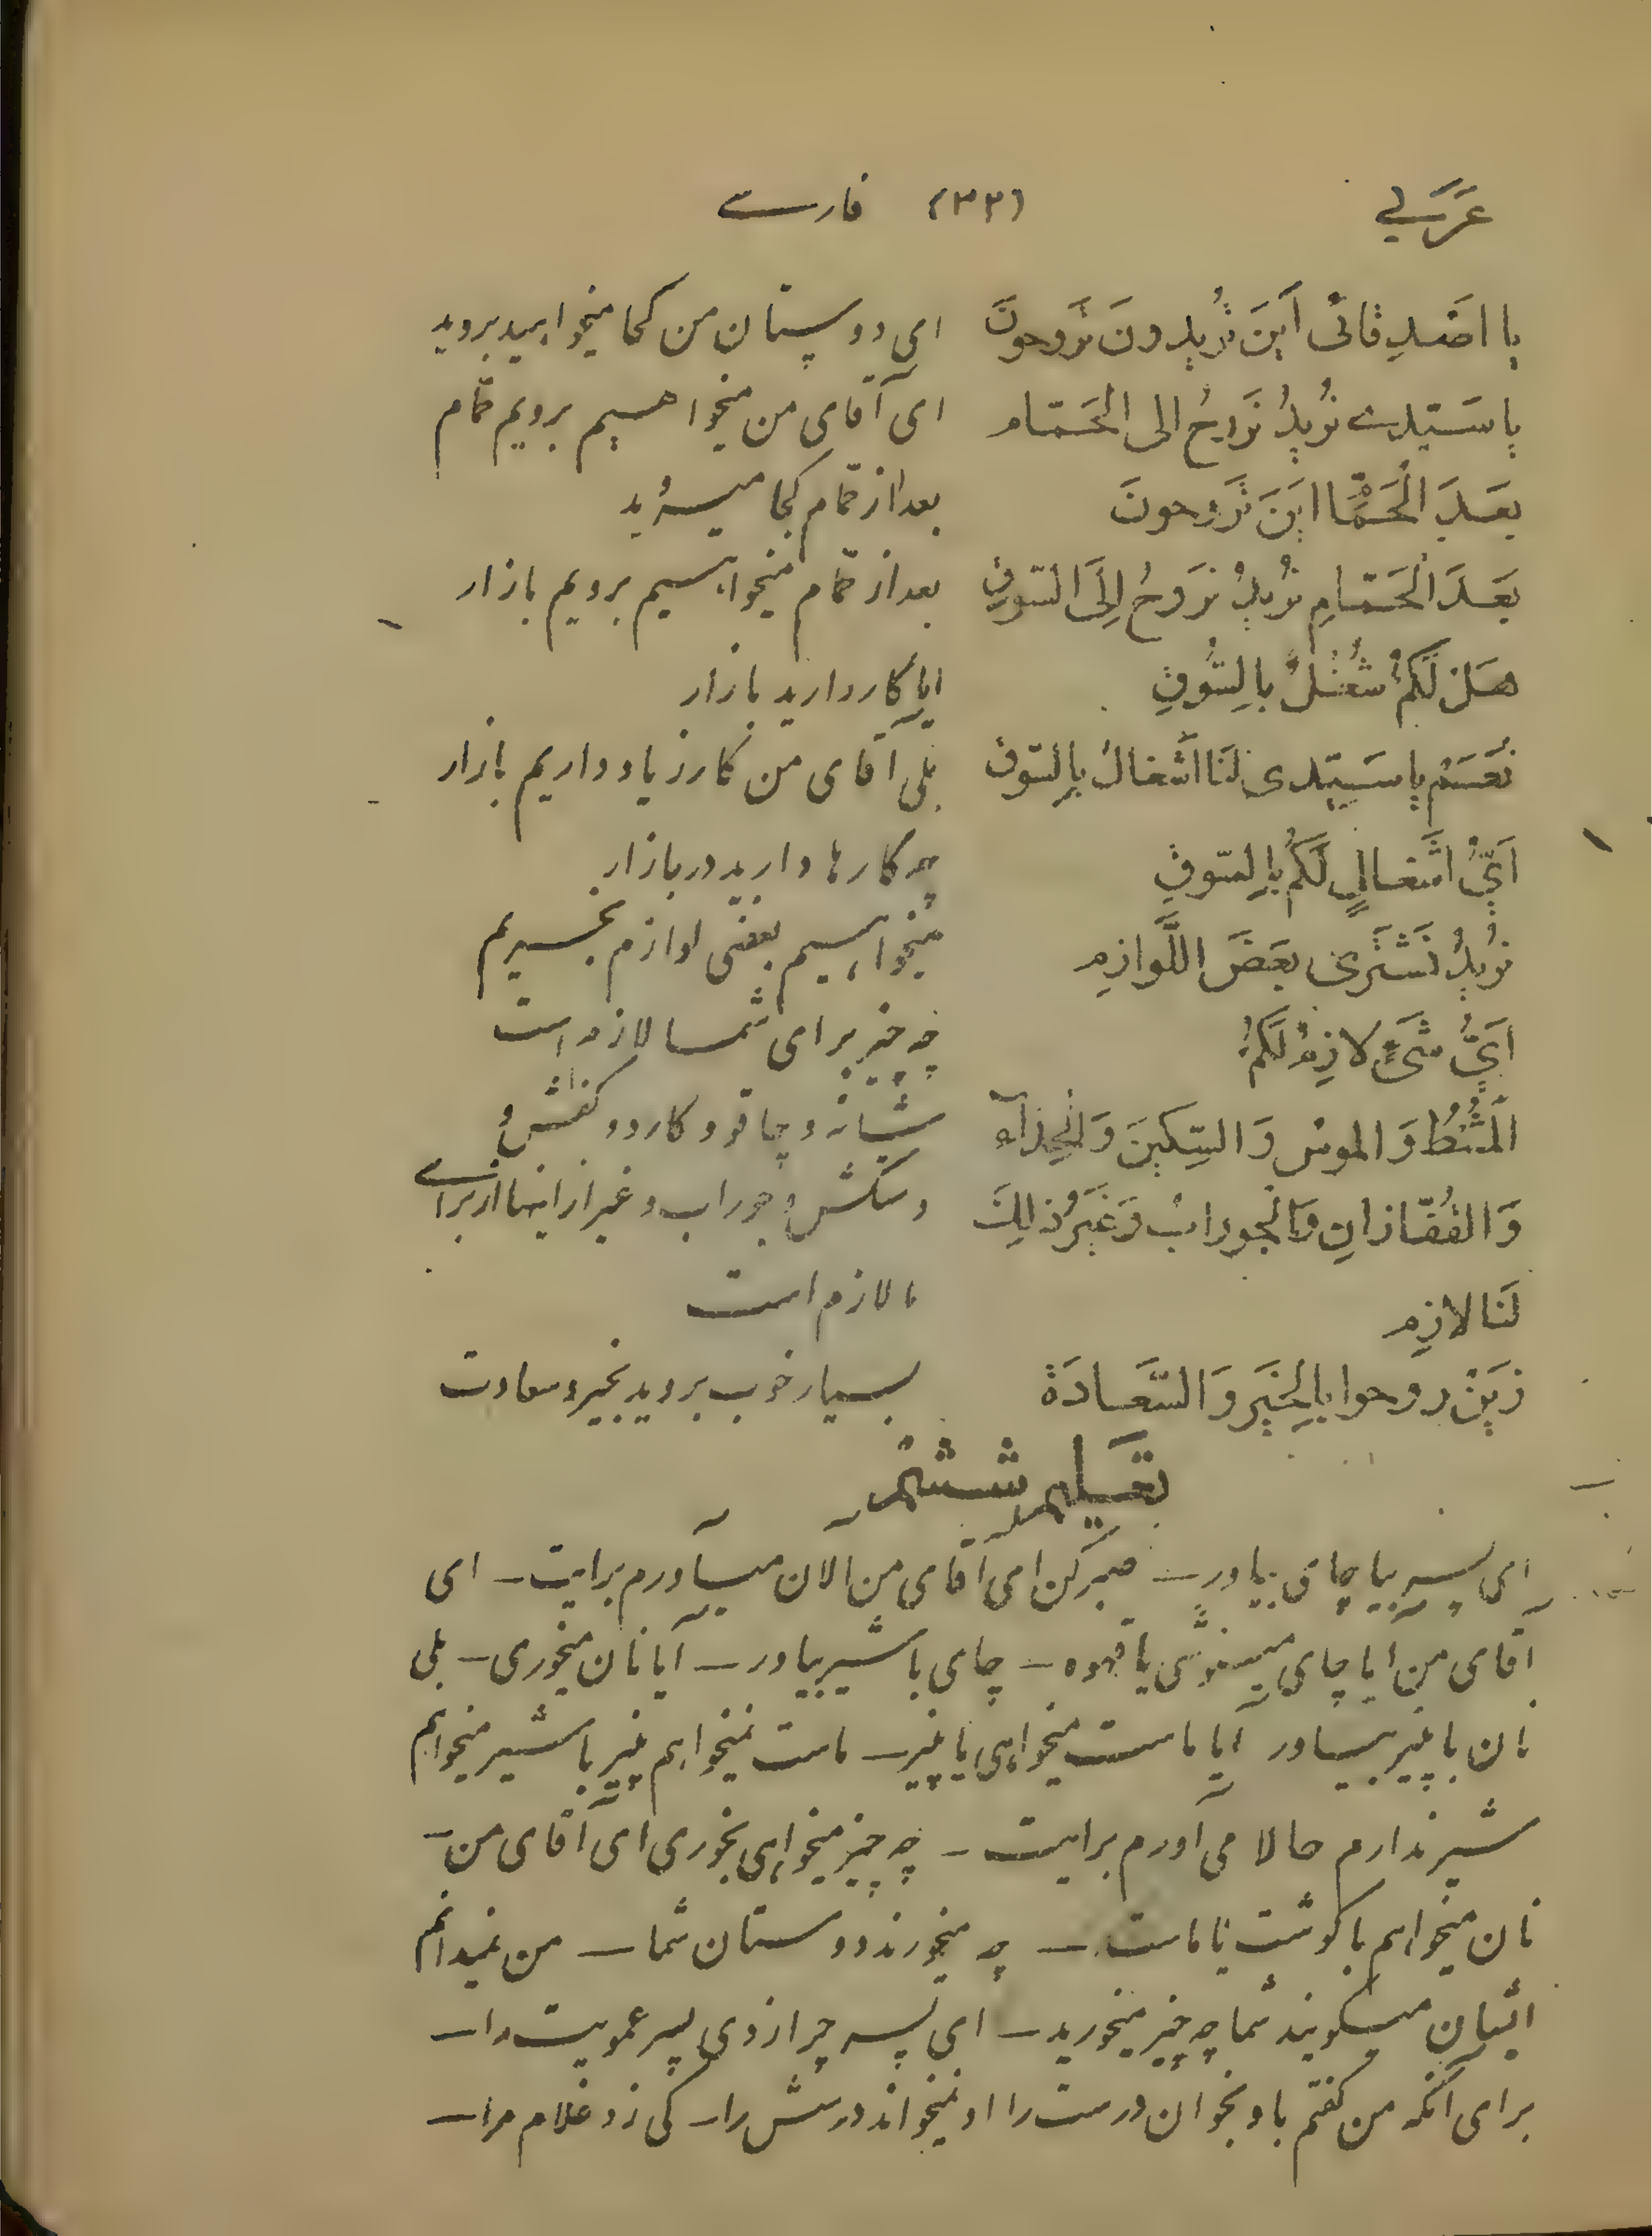 عَرَبي (٣٣) فارسے
يا اصَدِقائى اَينَ تُريدونَ تَروحونَ ای دوستان من کجا میخواهید بروید
يا سَيّدے نُريدُ نَروحُ الى الحَمّام ای آقای من میخواهیم برویم حمّام
بعَدَ الْحَمّام اينَ تَروحونَ بعد از حمّام کجا میروید
بَعدَ الْحَمّامِ نُريدُ نَروحُ اِلَى السّوقِ بعد از حمّام میخواهیم برویم بازار
هَل لَكُم شُغلٌ بِالسُّوقِ ایا کار دارید بازار
نَعَم يا سَيّدى لَنا اَشغالٌ بِالسّوقِ بلی آقای من کار زیاد داریم بازار
اَىُّ اشغالٍ لَكُم بِالسّوقِ چه کارها دارید در بازار
نُريدُ نَشتَرى بعَضَ اللَّوازِم میخواهیم بعضی لوازم بخریم
اَىُّ شَىءٍ لازِمٌ لَكُم چه چیز برای شما لازم است
اَلمُشطُ وَالموسُ وَالسِّكينَ وَالْحِذآء شانه و چاقو و کارد و کفش
وَالقُفّازانِ وَالْجورابُ وَغَيرُ ذٰلِكَ و دستکش و جوراب و غیر از اینها از برای
لَنا لازِم ما لازم است
زَين روحوا بِالخَيرِ وَالسَّعادَة بسیار خوب بروید بخیر و سعادت
تعَليم ششم
ای پسر بیا چای بیاور ـ صبر کن ای آقای من الان میآورم برایت ـ ای
آقای من ایا چای مینوشی یا قهوه ـ چای با شیر بیاور ـ آیا نان میخوری ـ بلی
نان با پنیر بیاور آیا ماست میخواهی یا پنیر ـ ماست نمیخواهم پنیر با شیر میخواهم
شیر ندارم حالا می آورم برایت ـ چه چیز میخواهی بخوری ای آقای من ـ
نان میخواهم با گوشت یا ماست ـ چه میخورند دوستان شما ـ من نمیدانم
ایشان میگویند شما چه چیز میخورید ـ ای پسر چرا زدی پسر عمویت را ـ
برای آنکه من گفتم باو بخوان درست را او نمیخواند درسش را ـ کی زد غلام مرا ـ